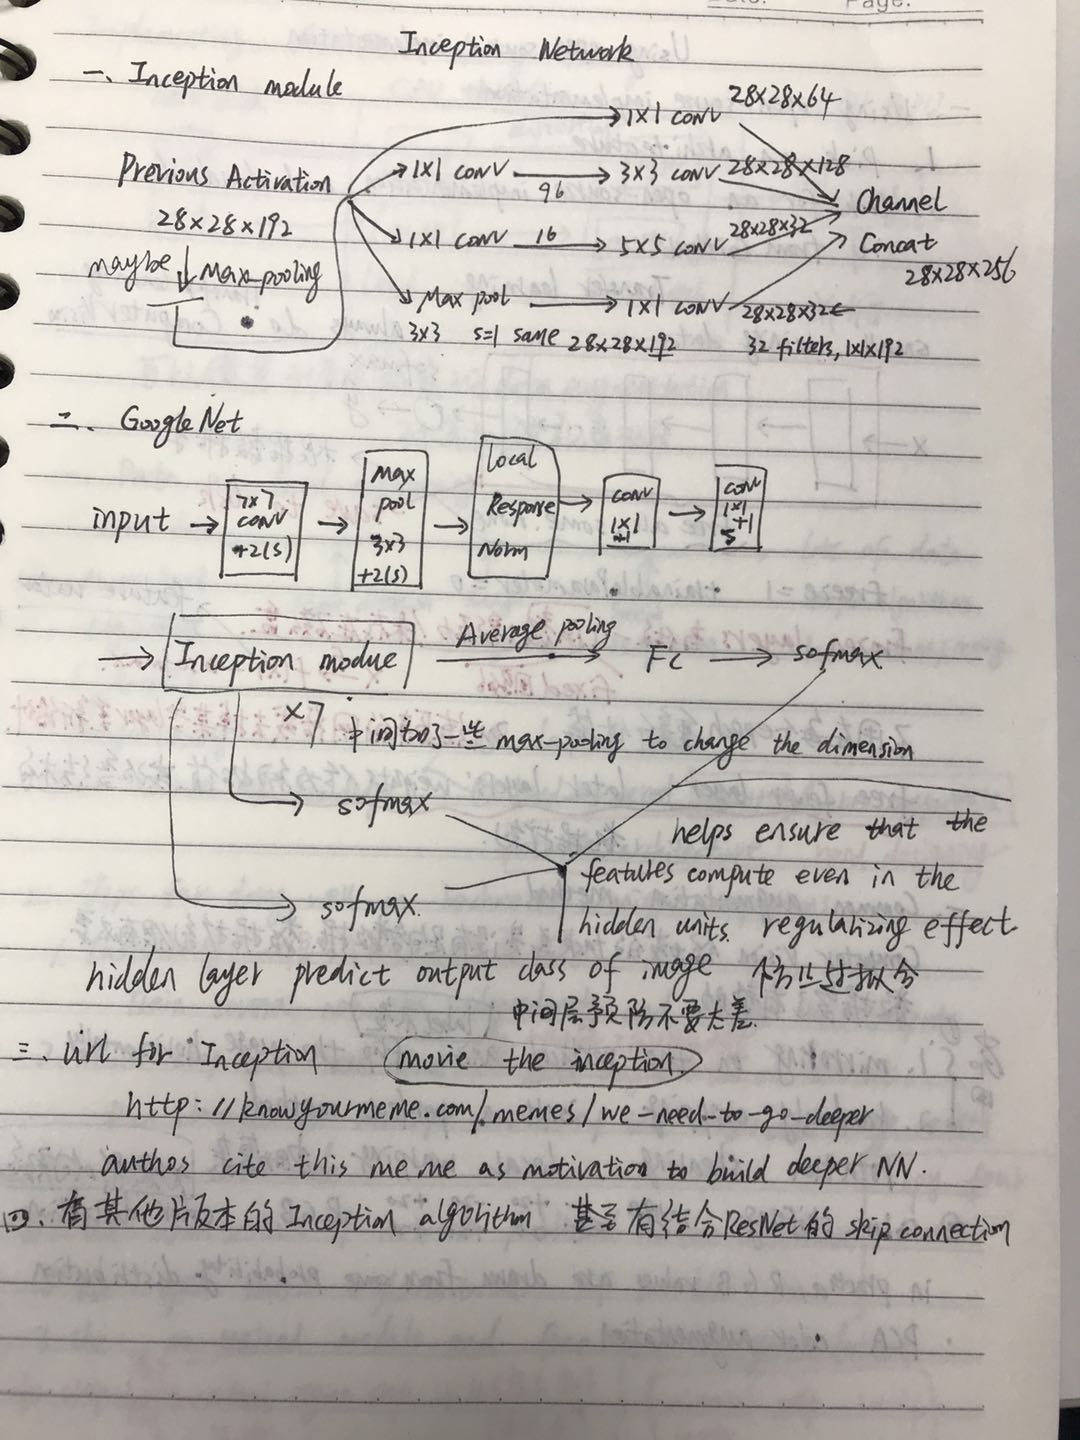 Inception Network
一、Inception module
28×28×64
1×1 CONV
Previous Activation
1×1 CONV
96
3×3 CONV
28×28×128
Channel
28×28×192
1×1 CONV
16
5×5 CONV
28×28×32
Concat
28×28×256
maybe
Max pooling
Max pool
1×1 CONV
28×28×32
3×3 s=1 same 28×28×192
32 filters, 1×1×192
二、Google Net
input
7×7
CONV
+2(s)
Max
pool
3×3
+2(s)
Local
Response
Norm
CONV
1×1
+1
CONV
1×1
+1
S
Inception modue
Average pooling
Fc
sofmax
×7
中间加了一些 max-pooling to change the dimension
sofmax
helps ensure that the
features compute even in the
sofmax.
hidden units. regularizing effect
hidden layer predict output class of image 防止过拟合
中间层预防不要太差.
三、url for Inception
movie the inception.
http://knowyourmeme.com/memes/we-need-to-go-deeper
authos cite this meme as motivation to build deeper NN.
四、有其他片版本的 Inception algorithm 甚至有结合ResNet的 skip connection